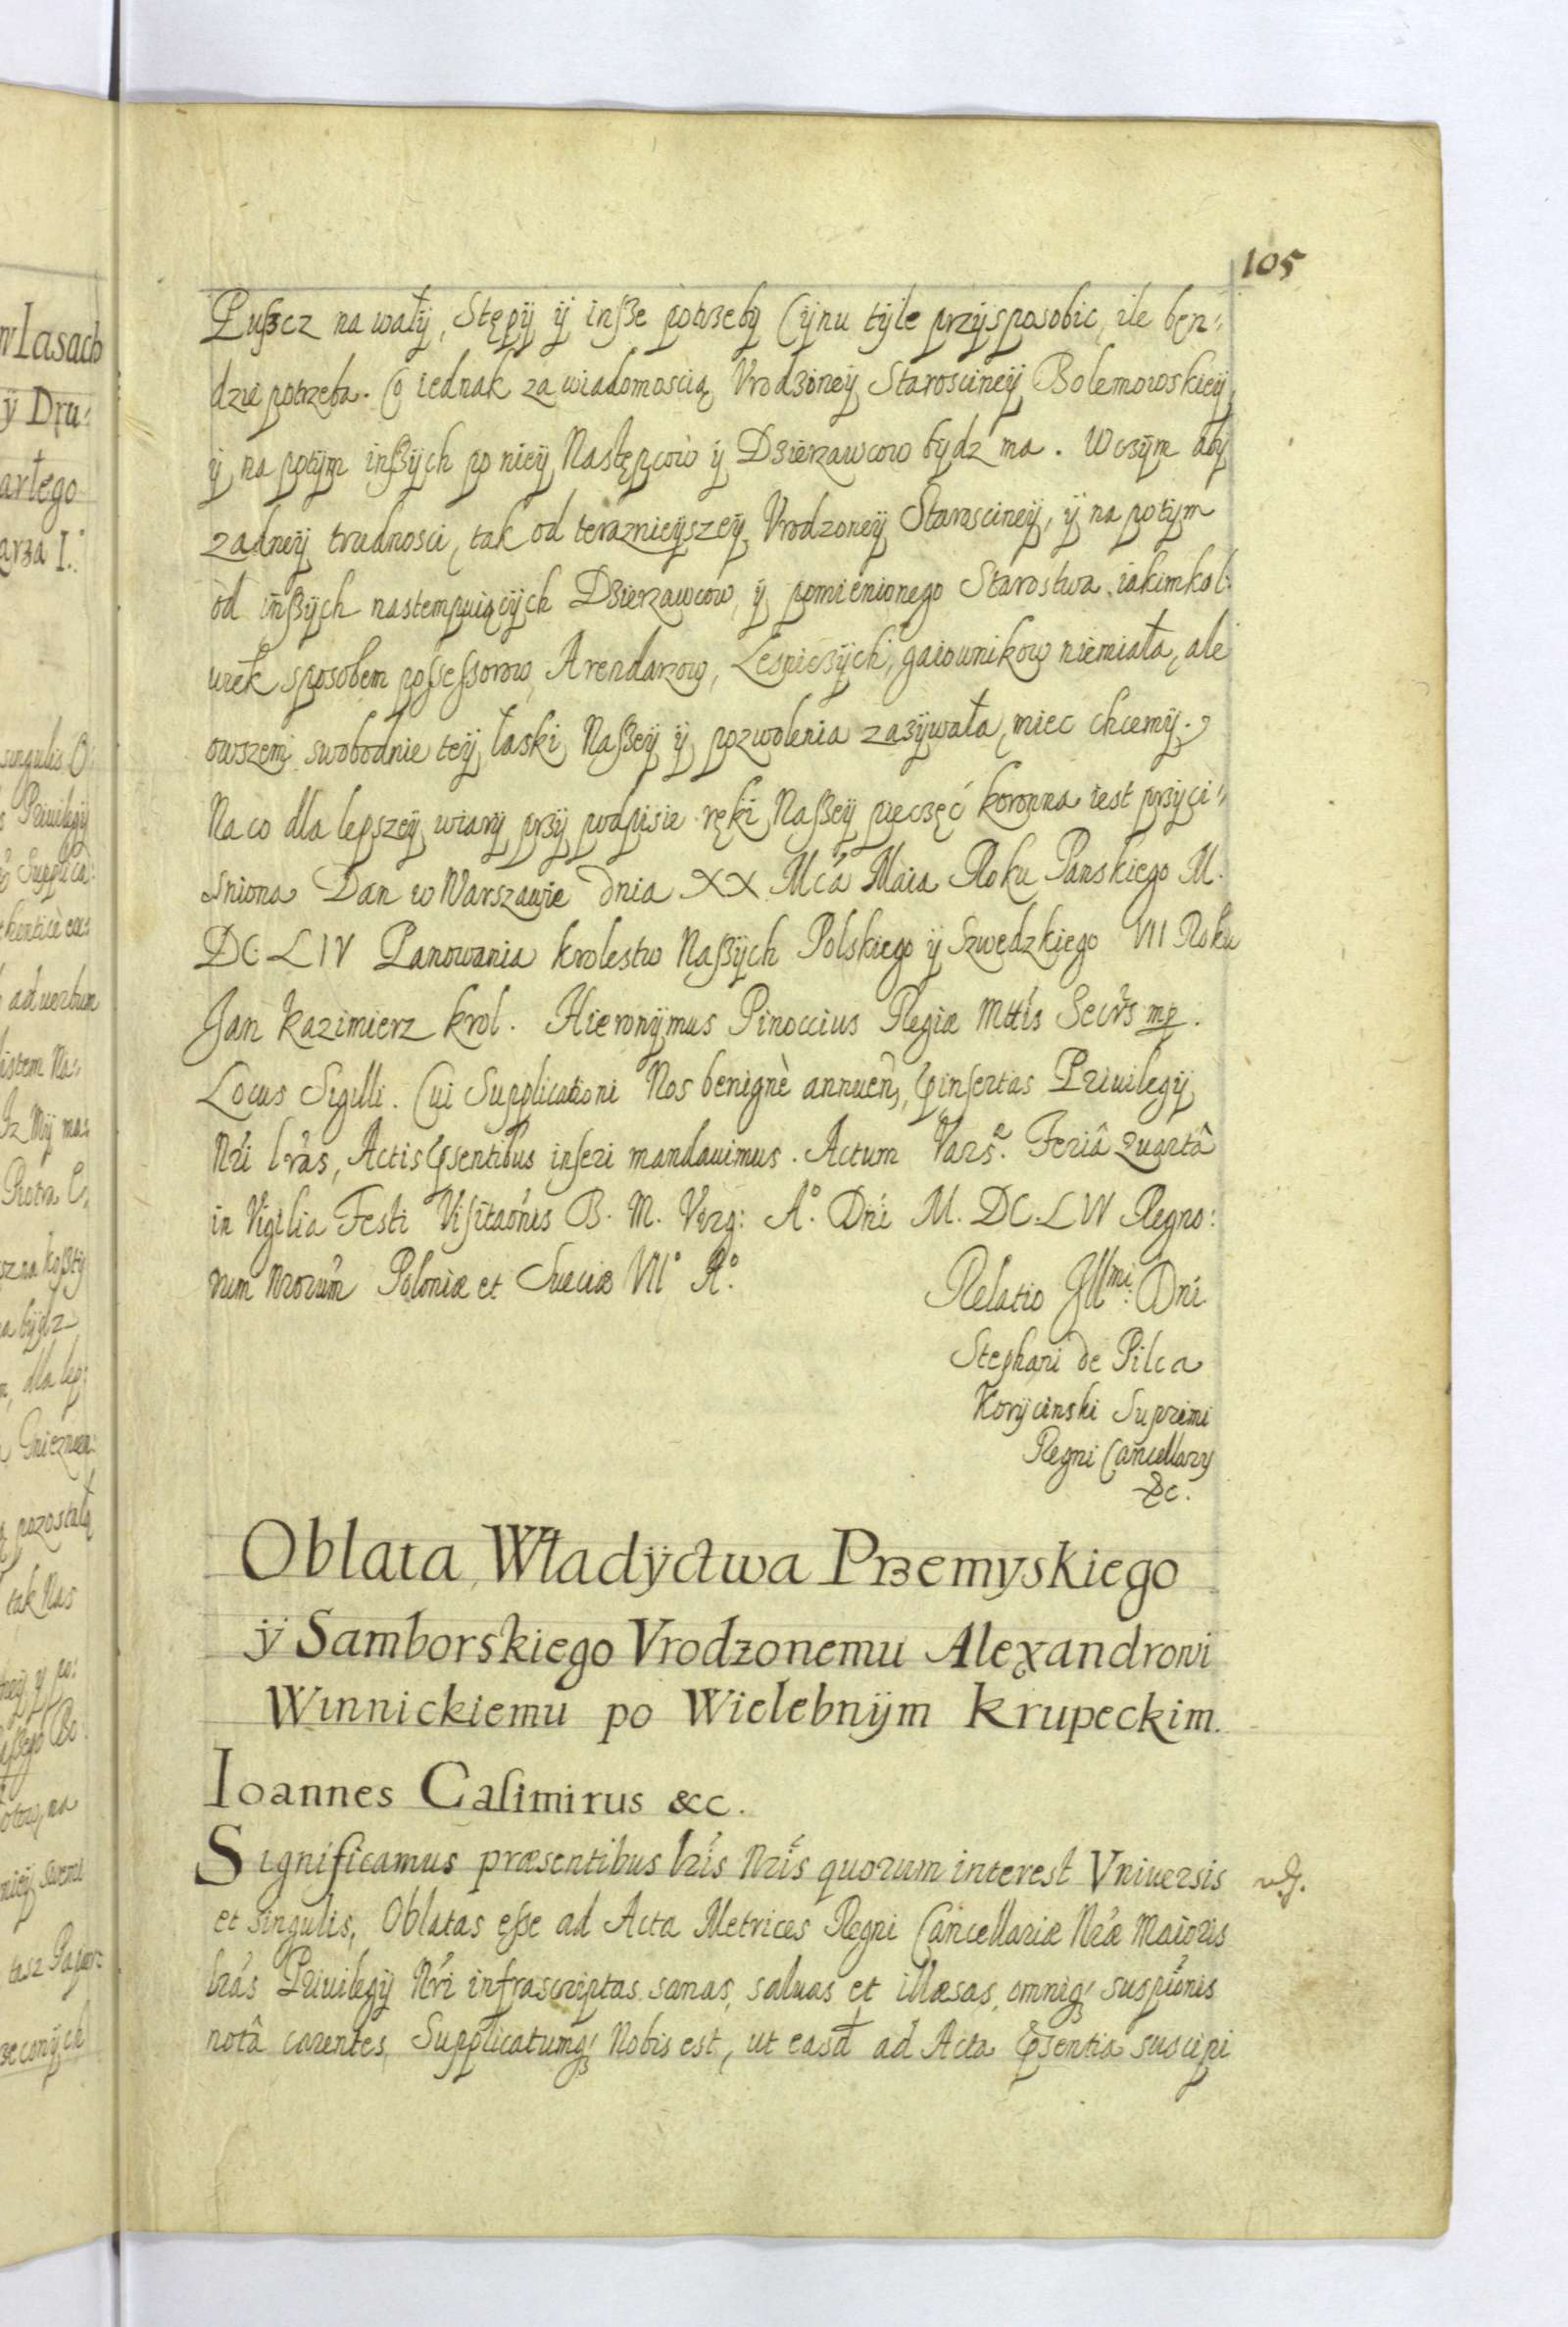 105
Pußcz na wały, Stępÿ ÿ inße potrzeby Cÿnu tÿle przÿsposobic, ile ben-
dzie potrzeba. Co iednak za wiadomoscią Vrodzoneÿ Starosicineÿ Bolemowskieÿ
ÿ na potÿm inßÿch po nieÿ Następcow ÿ Dzierzawcow bydz ma. Wczÿm aby
zadneÿ trudnosci, tak od teraznieÿszeÿ Vrodzoneÿ Starosicineÿ, ÿ na potÿm
od inßÿch nastempuiącÿch Dzierzawcow, ÿ pomienionego Starostwa iakimkol-
wiek sposobem poſseſsorow, Arendarzow, Lesniczÿch, gaiownikow niemiała, ale
owszem swobodnie teÿ łaski Naßeÿ ÿ pozwolenia zazÿwała, miec chcemÿ.
Na co dla lepszeÿ wiary przÿ podpisie ręki Naßeÿ pieczęć koronna iest przyci-
sniona Dan w Warszawie dnia XX Mcá Maia Roku Panskiego M.
DC. LIV Panowania krolestw Naßÿch Polskiego ÿ Szwedzkiego VII Roku
Jan Kazimierz krol. Hieronÿmus Pinoccius Regiæ Mttis Secrs mp.
Locus Sigilli. Cui Supplicationi Nos benignè annuen, pinsertas Priuilegÿ
Nri lras, Actis psentibus inseri mandauimus. Actum Vars. Feriâ Quartâ
in Vigilia Festi Visitaonis B. M. Virg: A°. Dni M. DC. LIV Regno:
rum Nrorum Poloniæ et Sueciæ VII° A°.
Relatio Illmi: Dni
Stephani de Pilca
Korÿcinski Supremi
Regni Cancellarÿ
&c.
Oblata Władÿctwa Przemyskiego
ÿ Samborskiego Vrodzonemu Alexandrowi
Winnickiemu po Wielebnÿm Krupeckim.
Ioannes Caſimirus &c.
Significamus præsentibus lris Nris quorum interest Vniuersis
et singulis, Oblatas eſse ad Acta Metrices Regni Cancellariæ Nræ Maioris
lras Priuilegÿ Nri infrascriptas sanas, saluas et illæsas, omniq suspionis
notâ carentes, Supplicatumq Nobis est, ut easd ad Acta psentia suscipi